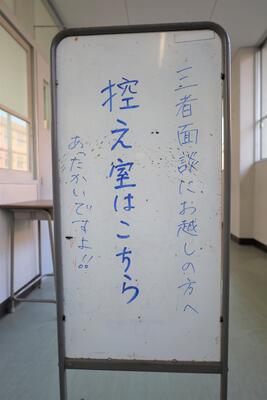 三者面談にお越しの方へ
控え室はこちら
あったかいですよ!!